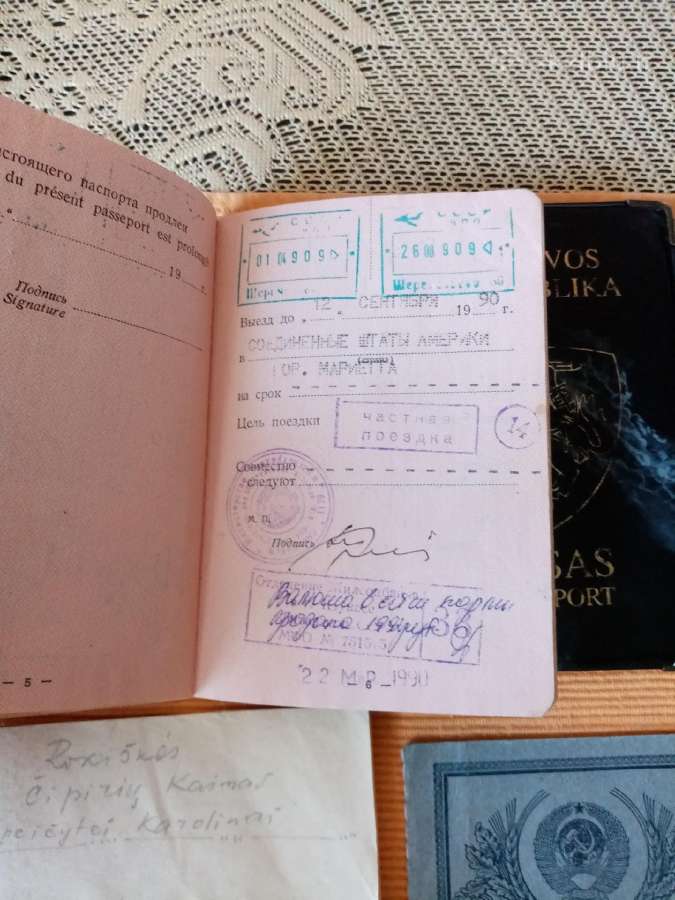 настоящего паспорта продлен
du présent passeport est prolongé
19 г.
Подпись
Signature
— 5 —
СССР
01 04 90 9
26 08 90 9
Шереметьево
Выезд до „ 12 “ СЕНТЯБРЯ 19 90 г.
в СОЕДИНЕННЫЕ ШТАТЫ АМЕРИКИ
(страна)
ГОР. МАРИЕТТА
на срок
Цель поездки
частная
поездка
14
Совместно
следуют
м. п.
Подпись
Валюта в
продана
МФО №
22 МАР 1990
6
VOS
BLIKA
SAS
PORT
Rokiškės
Čipirių Kaimas
Karolinai